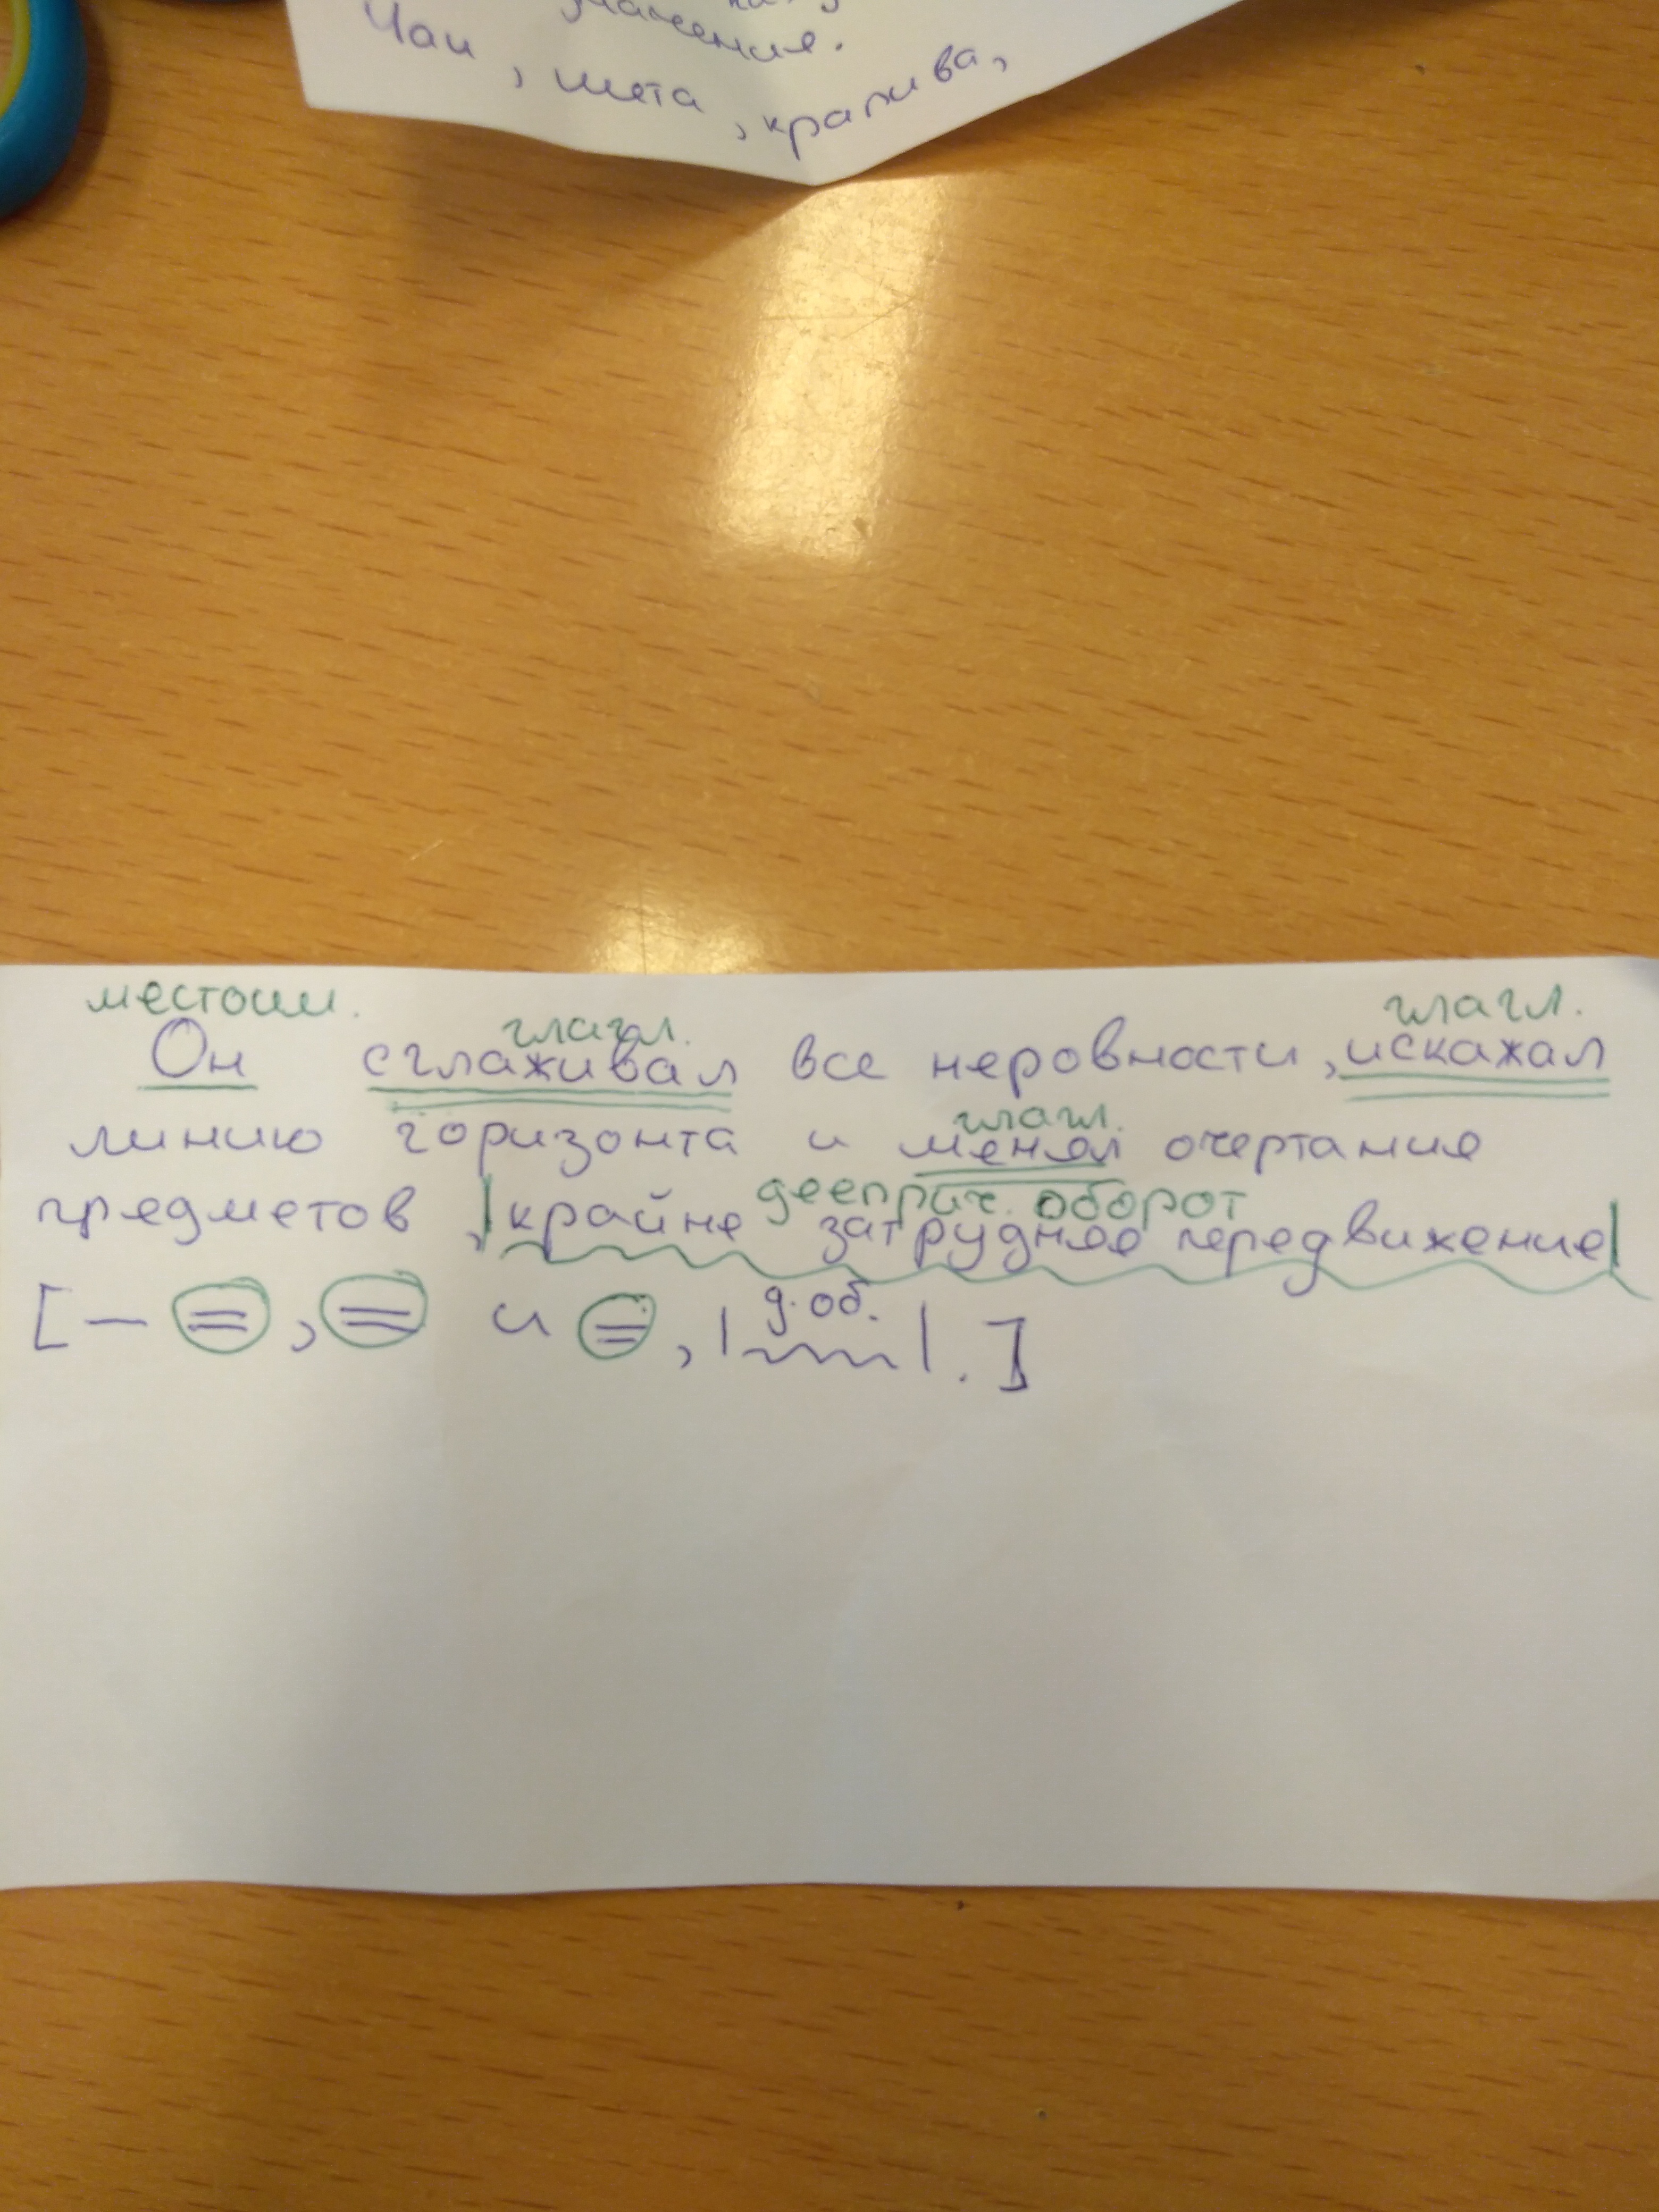 значения.
Чаи, мята, крапива,
местоим. глагл. глагл.
Он сглаживал все неровности, искажал
глагл.
линию горизонта и менял очертание
дееприч. оборот
предметов, |крайне затрудняя передвижение|
[— =, = и =, |д. об.|.]